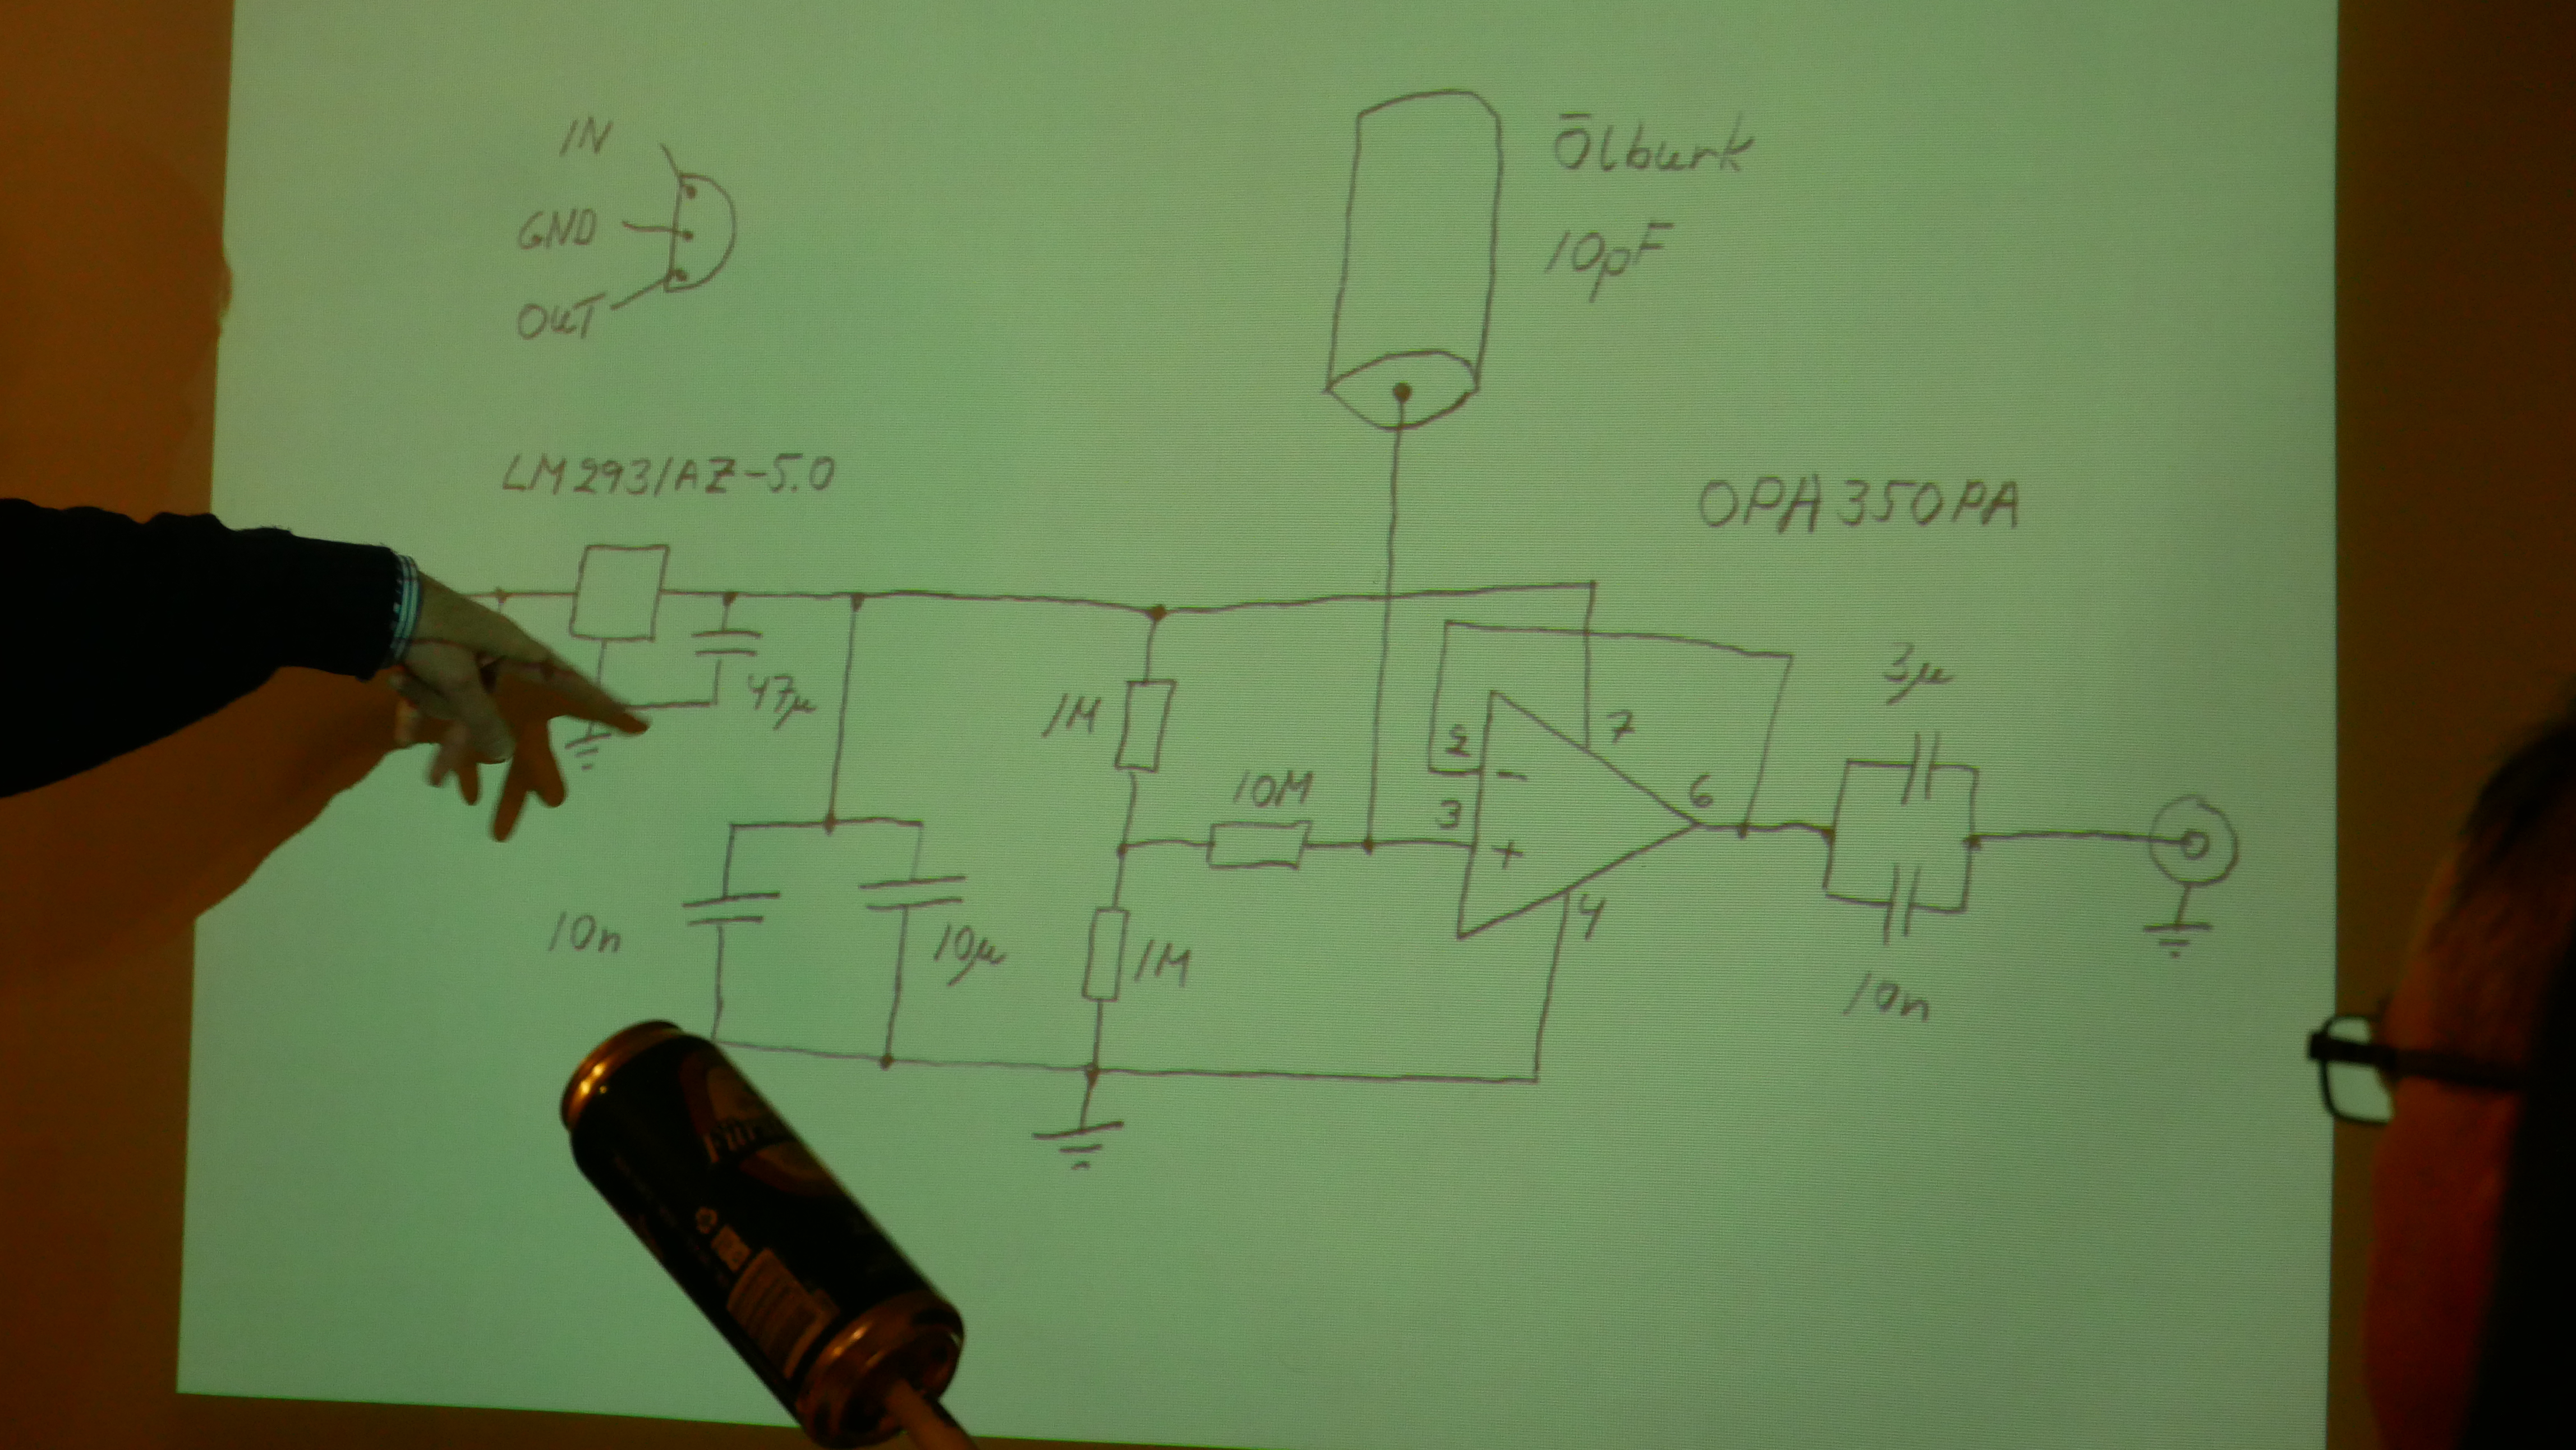 IN
GND
OUT
Ölburk
10pF
LM2931AZ-5.0
OPA350PA
47μ
1M
10M
2
3
7
6
4
3μ
10n
10μ
1M
10n